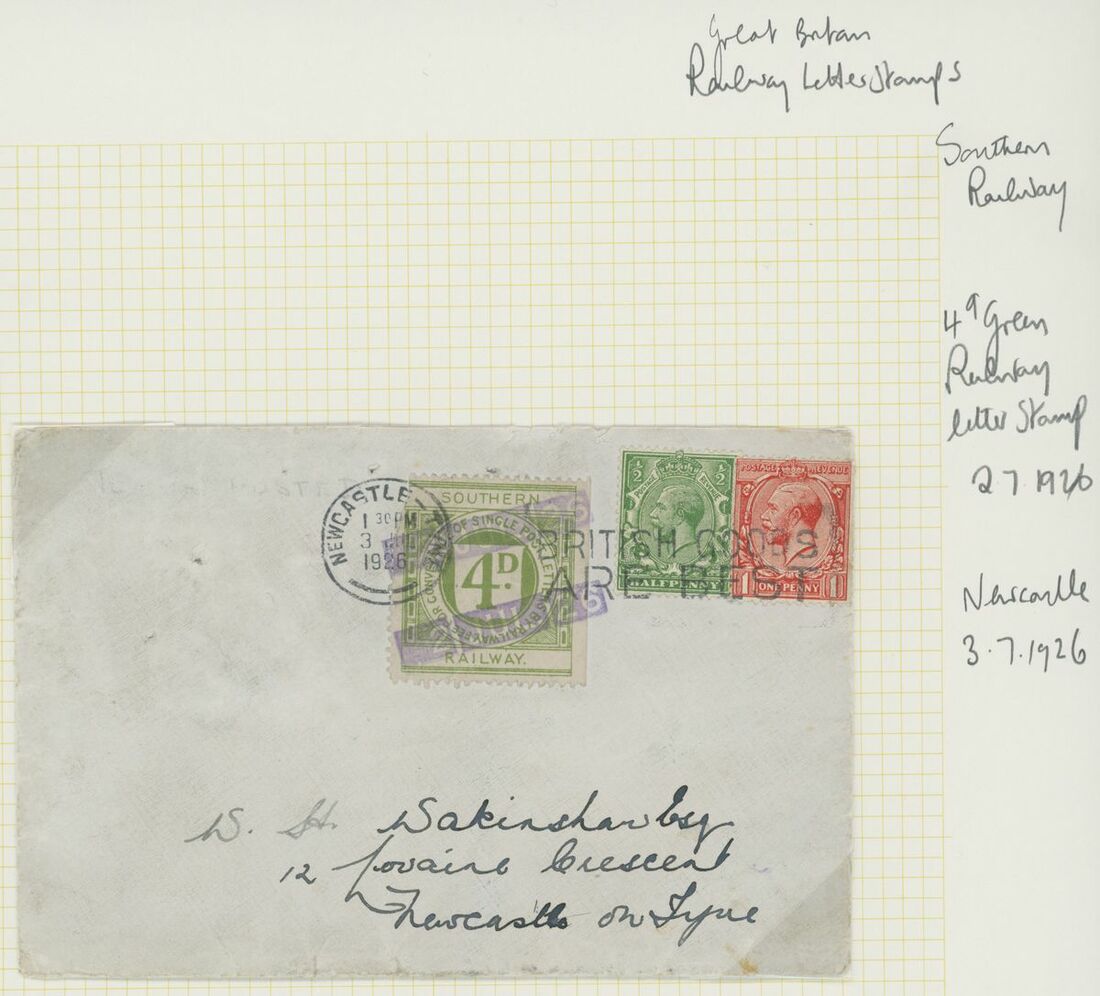 Great Britain
Railway Letter Stamps
Southern
Railway
4d Green
Railway
letter Stamp
2 7 1926
Newcastle
3.7.1926
NEWCASTLE
1 30 PM
3
1926
SOUTHERN
FOR CONVEYANCE OF SINGLE POST LETTERS BY RAILWAY
4D.
RAILWAY.
1/2 1/2
POSTAGE REVENUE
HALFPENNY
POSTAGE REVENUE
1 ONE PENNY 1
BRITISH GOODS
ARE BEST
W. H. Wakinshaw Esq
12 Lovaine Crescent
Newcastle on Tyne